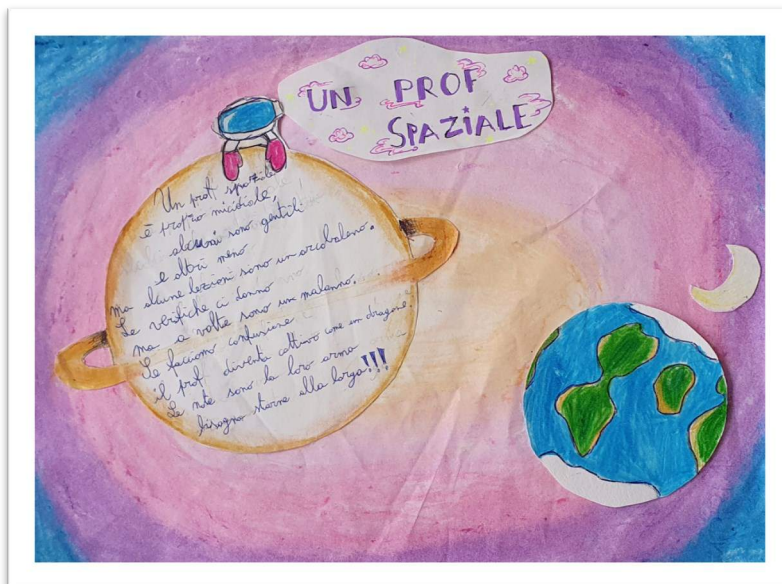 UN PROF
SPAZIALE
Un prof spaziale
è proprio micidiale,
alcuni sono gentili
e altri meno
ma alcune lezioni sono un arcobaleno.
Le verifiche ci danno
ma a volte sono un malanno.
Se facciamo confusione
il prof diventa cattivo come un dragone.
Le note sono la loro arma
bisogna starne alla larga!!!